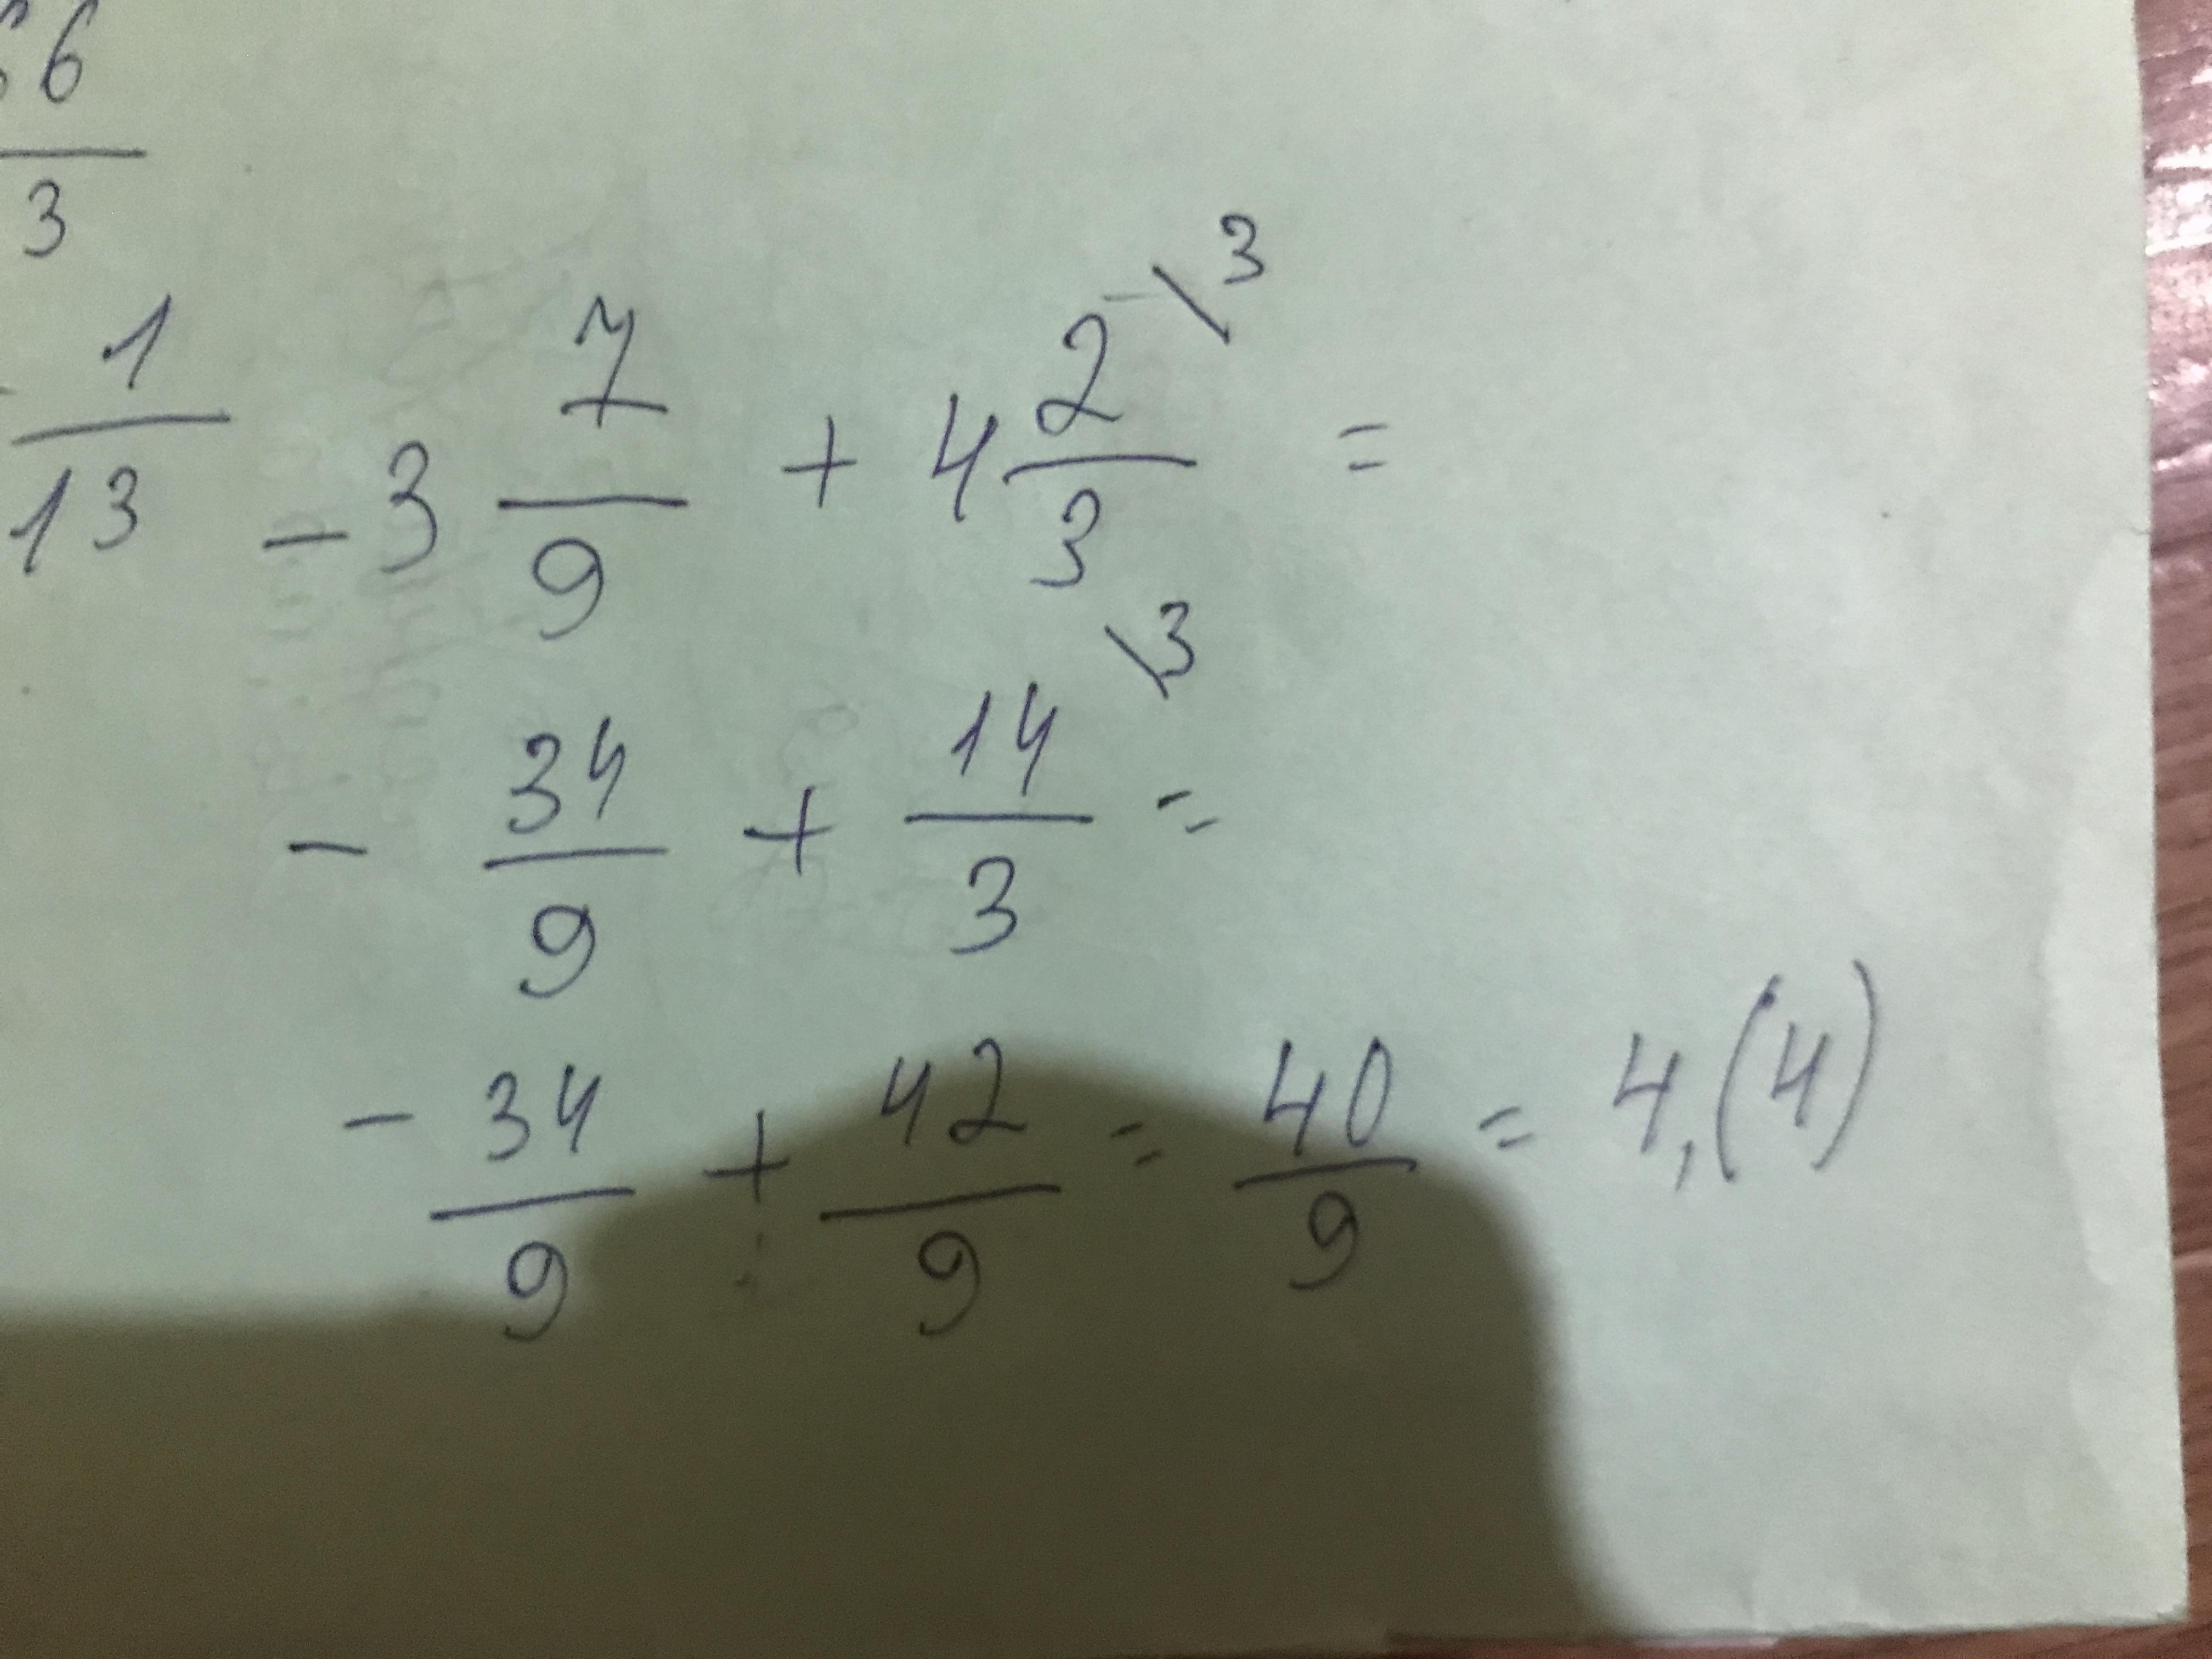 66
3
1
13
-3 7/9 + 4 2/3 \3 =
- 34/9 + 14/3 \3 =
- 34/9 + 42/9 = 40/9 = 4,(4)